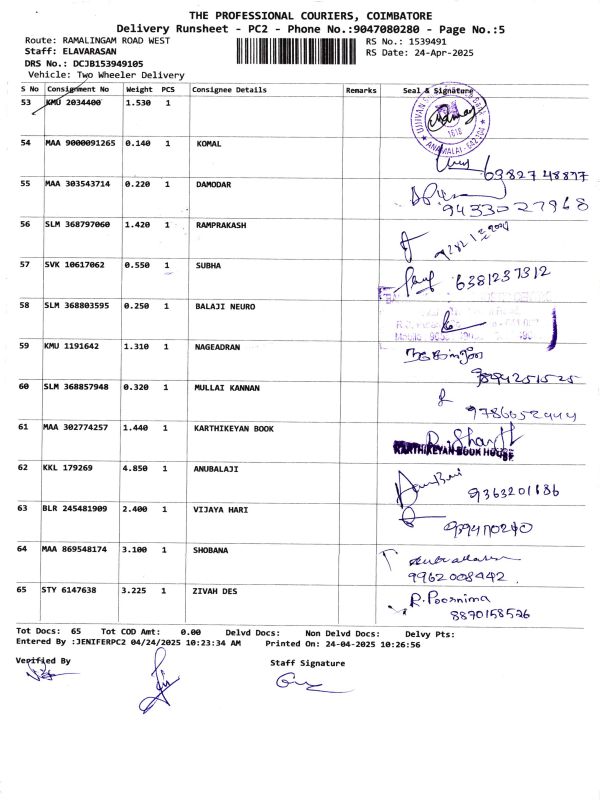 THE PROFESSIONAL COURIERS, COIMBATORE
Delivery Runsheet - PC2 - Phone No.:9047080280 - Page No.:5
Route: RAMALINGAM ROAD WEST RS No.: 1539491
Staff: ELAVARASAN RS Date: 24-Apr-2025
DRS No.: DCJB153949105
Vehicle: Two Wheeler Delivery
S No Consignment No Weight PCS Consignee Details Remarks Seal & Signature
53 KMU 2034400 1.530 1
54 MAA 9000091265 0.140 1 KOMAL
55 MAA 303543714 0.220 1 DAMODAR
9433027968
56 SLM 368797060 1.420 1 RAMPRAKASH
57 SVK 10617062 0.550 1 SUBHA
6381237312
58 SLM 368803595 0.250 1 BALAJI NEURO
59 KMU 1191642 1.310 1 NAGEADRAN
60 SLM 368857948 0.320 1 MULLAI KANNAN
9786652444
61 MAA 302774257 1.440 1 KARTHIKEYAN BOOK
KARTHIKEYAN BOOK HOUSE
62 KKL 179269 4.850 1 ANUBALAJI
9363201686
63 BLR 245481909 2.400 1 VIJAYA HARI
64 MAA 869548174 3.100 1 SHOBANA
9962008442
65 STY 6147638 3.225 1 ZIVAH DES R. Poornima
8870158526
Tot Docs: 65 Tot COD Amt: 0.00 Delvd Docs: Non Delvd Docs: Delvy Pts:
Entered By :JENIFERPC2 04/24/2025 10:23:34 AM Printed On: 24-04-2025 10:26:56
Verified By Staff Signature